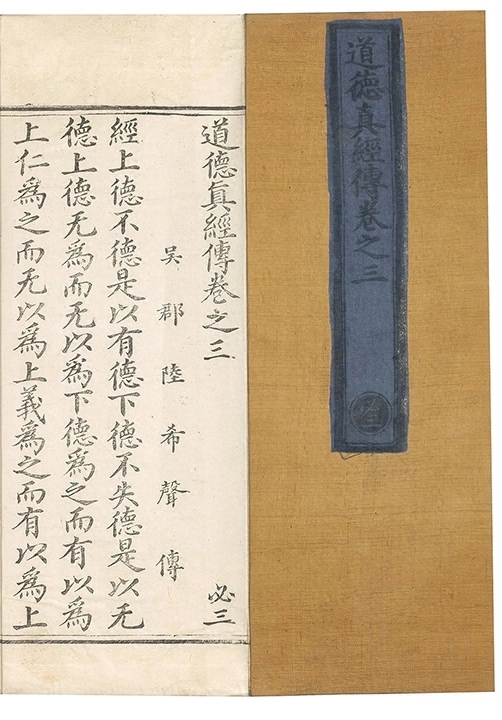 道德真經傳卷之三
道德真經傳卷之三 必三
吴郡陸希聲傳
經上德不德是以有德下德不失德是以无
德上德无爲而无以爲下德爲之而有以爲
上仁爲之而无以爲上義爲之而有以爲上